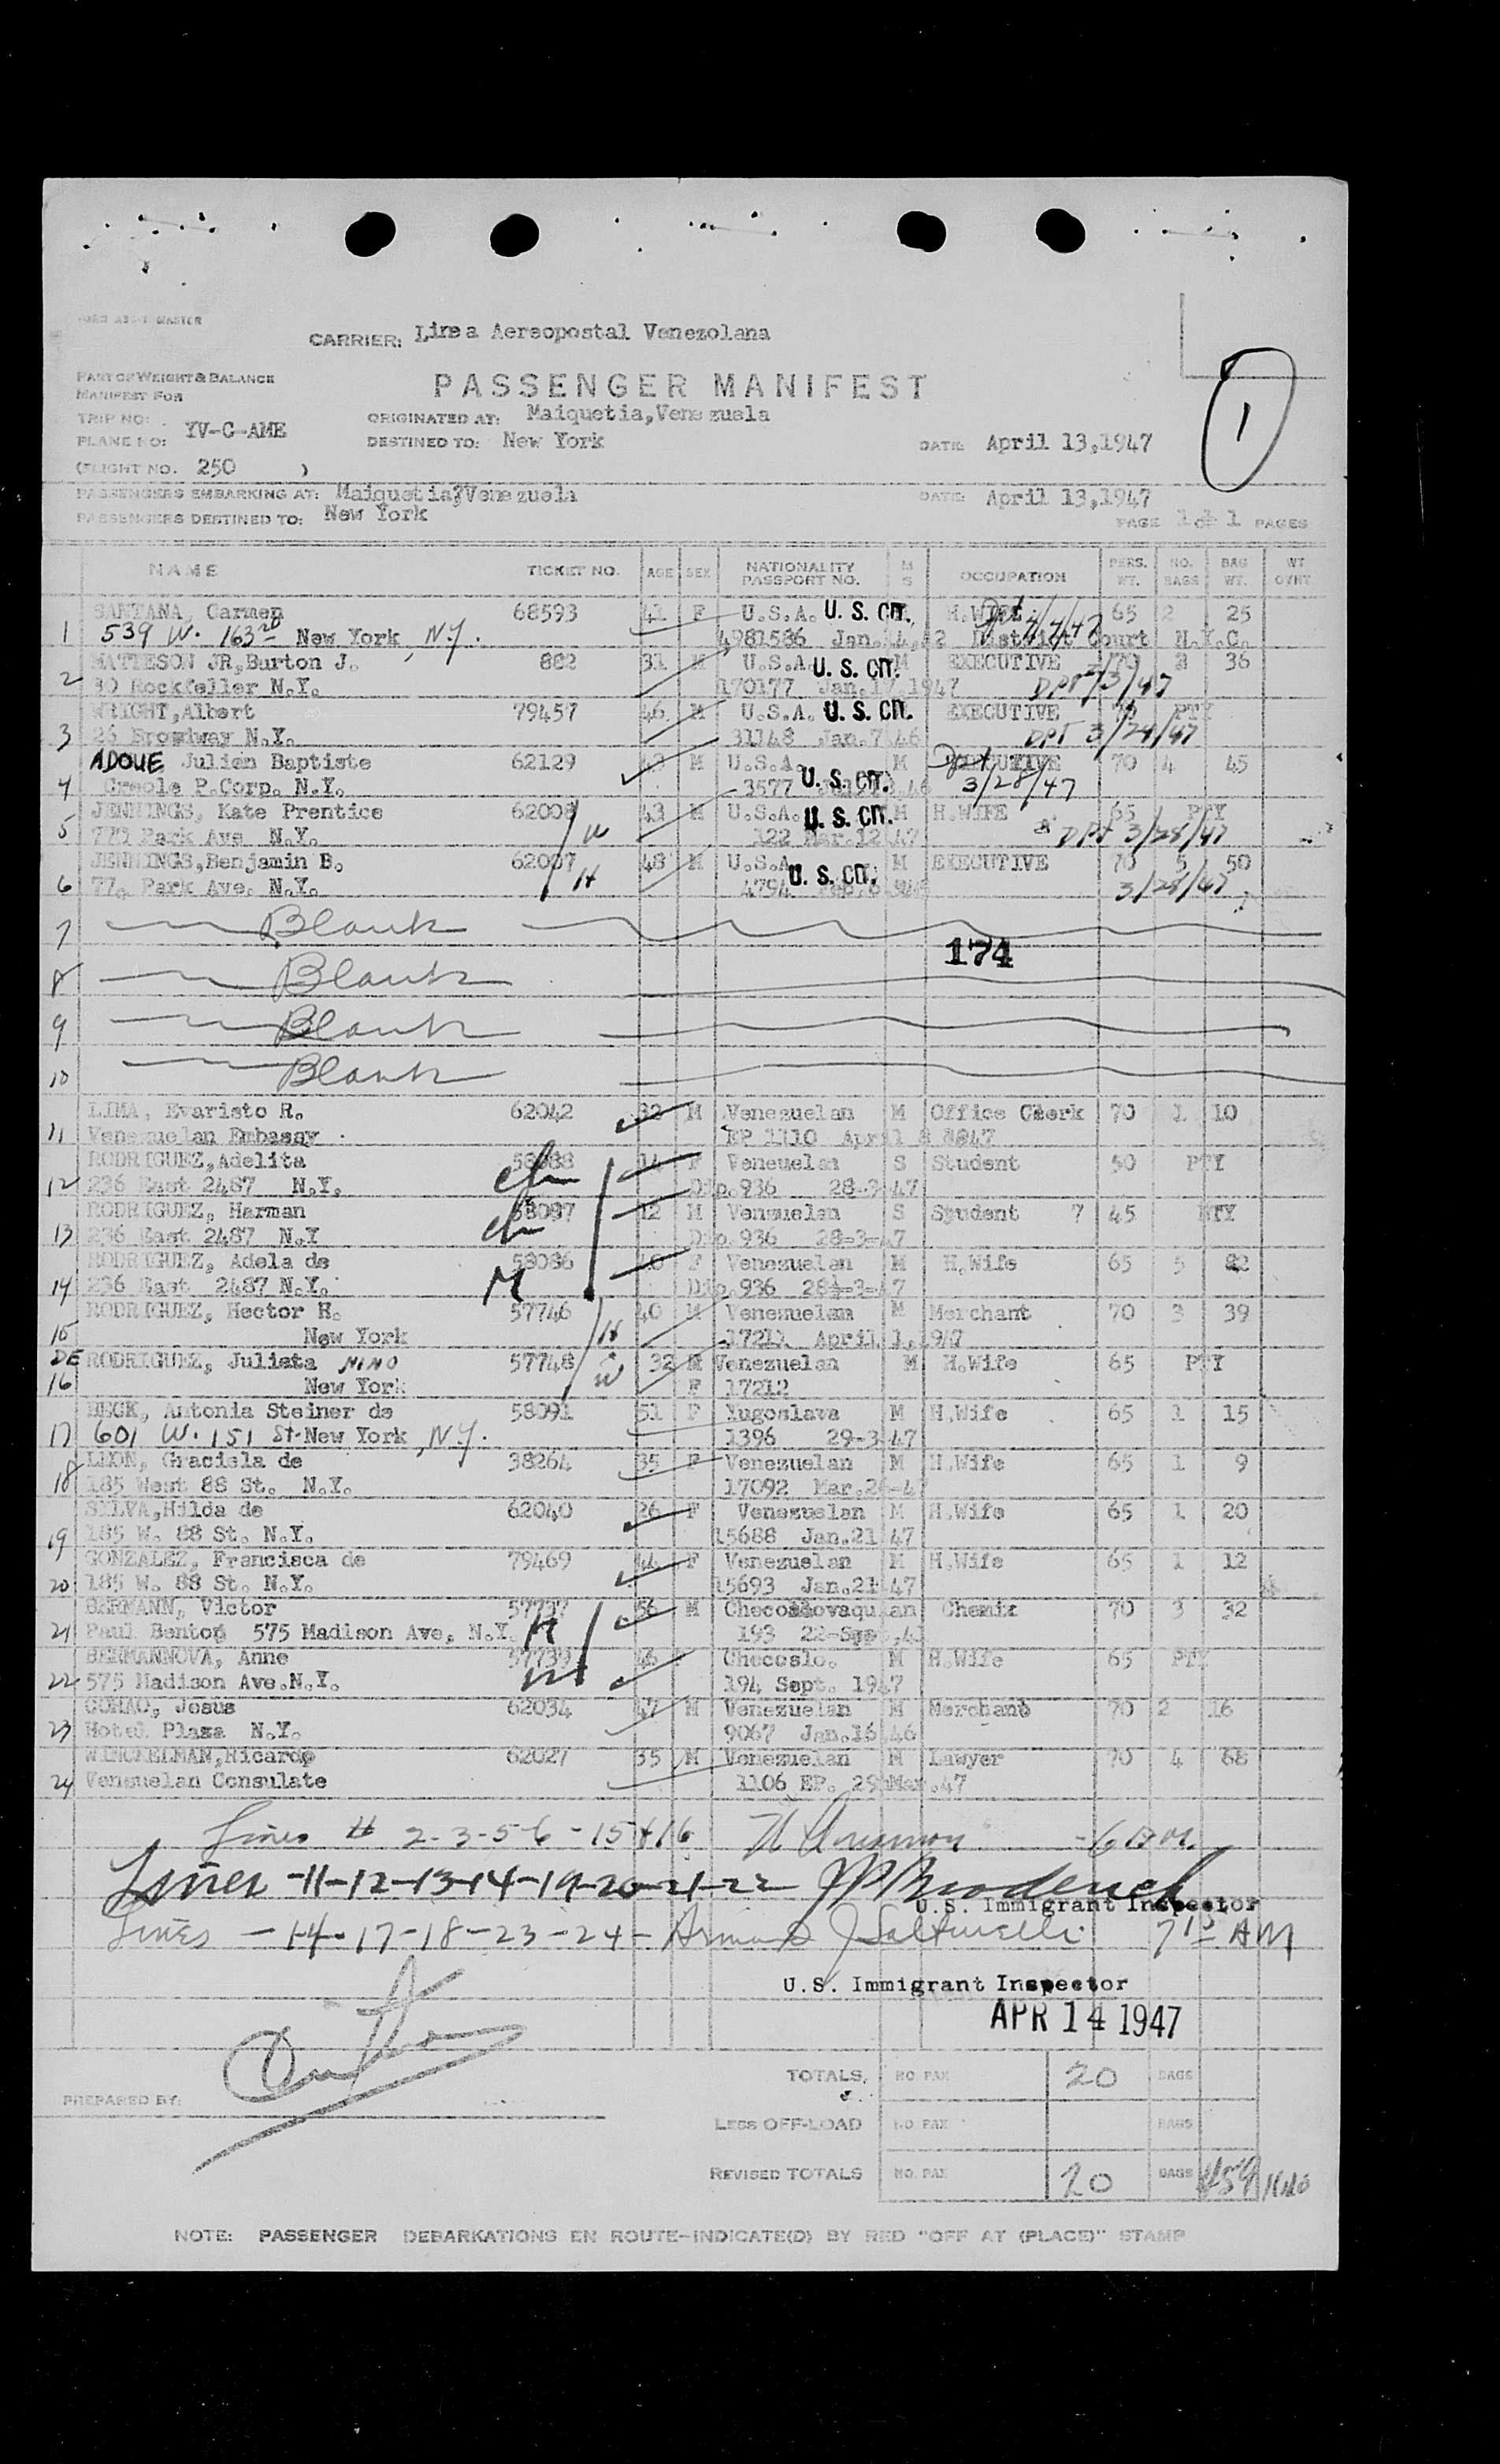 CARRIER: Linea Aereopostal Venezolana
PART OF WEIGHT & BALANCE
MANIFEST FOR
PASSENGER MANIFEST
TRIP NO:
PLANE NO: YV-C-AME
ORIGINATED AT: Maiquetia,Venezuela
DESTINED TO: New York
DATE: April 13,1947
(FLIGHT NO. 250 )
1
PASSENGERS EMBARKING AT: Maiquetia,Venezuela DATE: April 13,1947
PASSENGERS DESTINED TO: New York PAGE 1 of 1 PAGES
NAME TICKET NO. AGE SEX NATIONALITY PASSPORT NO. M S OCCUPATION PERS. WT. NO. BAGS BAG WT. WT
SANTANA, Carmen 68593 41 F U.S.A. U. S. CIT. H.WIFE 65 2 25
1 539 W. 163rd New York, N.Y. 4981586 Jan. District Court N.Y.C.
MATTESON JR,Burton J. 882 31 M U.S.A. U. S. CIT. M EXECUTIVE 70 36
2 30 Rockfeller N.Y. 170177 Jan.17,1947 DPT /3/47
WRIGHT,Albert 79457 46 M U.S.A. U. S. CIT. EXECUTIVE PTY
3 26 Broadway N.Y. 31148 Jan.7 46 DPT 3/24/47
ADOUE, Julien Baptiste 62129 43 M U.S.A. U. S. CIT. M EXECUTIVE 70 4 45
4 Creole P.Corp. N.Y. 3577 46 3/28/47
JENNINGS, Kate Prentice 62008 W 43 M U.S.A. U. S. CIT. M H.WIFE 65 PTY
5 Park Ave N.Y. 122 Mar.12 47 DPT 3/28/47
JENNINGS,Benjamin B. 62007 H 48 M U.S.A. U. S. CIT. M EXECUTIVE 70 5 50
6 Park Ave. N.Y. 4794 3/28/47
7 Blank
174
8 Blank
9 Blank
10 Blank
LIMA, Evaristo R. 62042 32 M Venezuelan M Office Clerk 70 1 10
11 Venezuelan Embassy EP 1110 April 8
RODRIGUEZ,Adelita 58088 14 F Veneuelan S Student 50 PTY
12 236 East 2487 N.Y. Dip.936 28-3-47
RODRIGUEZ, Harman 58087 12 M Venzuelan S Student ? 45 PTY
13 236 East 2487 N.Y Dip.936 28-3-47
RODRIGUEZ, Adela de 58086 M 40 F Venezuelan M H.Wife 65 5 82
14 236 East 2487 N.Y. Dip.936 28-3-47
RODRIGUEZ, Hector H. 57746 H 40 M Venezuelan M Merchant 70 3 39
15 New York 17211 April 1,1947
DE RODRIGUEZ, Julieta NINO 57748 W 32 M Venezuelan M H.Wife 65 PTY
16 New York F 17212
BECK, Antonia Steiner de 58091 51 F Yugoslava M H.Wife 65 1 15
17 601 W. 151 St. New York, N.Y. 1396 29-3 47
LEON, Graciela de 38264 35 F Venezuelan M H.Wife 65 1 9
18 185 West 88 St. N.Y. 17092 Mar.26-47
SILVA,Hilda de 62040 26 F Venezuelan M H.Wife 65 1 20
19 185 W. 88 St. N.Y. 15688 Jan.21 47
GONZALEZ, Francisca de 79469 44 F Venezuelan M H.Wife 65 1 12
20 185 W. 88 St. N.Y. 15693 Jan.21 47
BERMANN, Victor 57737 H 56 M Checoslovaquian Chemix 70 3 32
21 Paul Benton 575 Madison Ave, N.Y. 193 22-Sep
BERMANNOVA, Anne 57739 W 46 Checoslo. M H.Wife 65 PTY
22 575 Madison Ave.N.Y. 194 Sept. 1947
Jesus 62034 47 M Venezuelan M Merchand 70 2 16
23 Hotel Plaza N.Y. 9067 Jan.16 46
WINCKELMAN,Ricardo 62027 35 M Venezuelan M Lawyer 70 4 68
24 Venzuelan Consulate 1106 EP. 29 Mar.47
Lines # 2-3-5-6-15+16
Lines -11-12-13-14-19-20-21-22 JP Broderick
U.S. Immigrant Inspector
Lines -1-4-17-18-23-24- Armand J. 7 15 AM
U.S. Immigrant Inspector
APR 14 1947
TOTALS NO. PAX 20 BAGS
PREPARED BY:
LESS OFF-LOAD NO. PAX BAGS
REVISED TOTALS NO. PAX 20 BAGS 459 Kilo
NOTE: PASSENGER DEBARKATIONS EN ROUTE-INDICATE(D) BY RED "OFF AT (PLACE)" STAMP